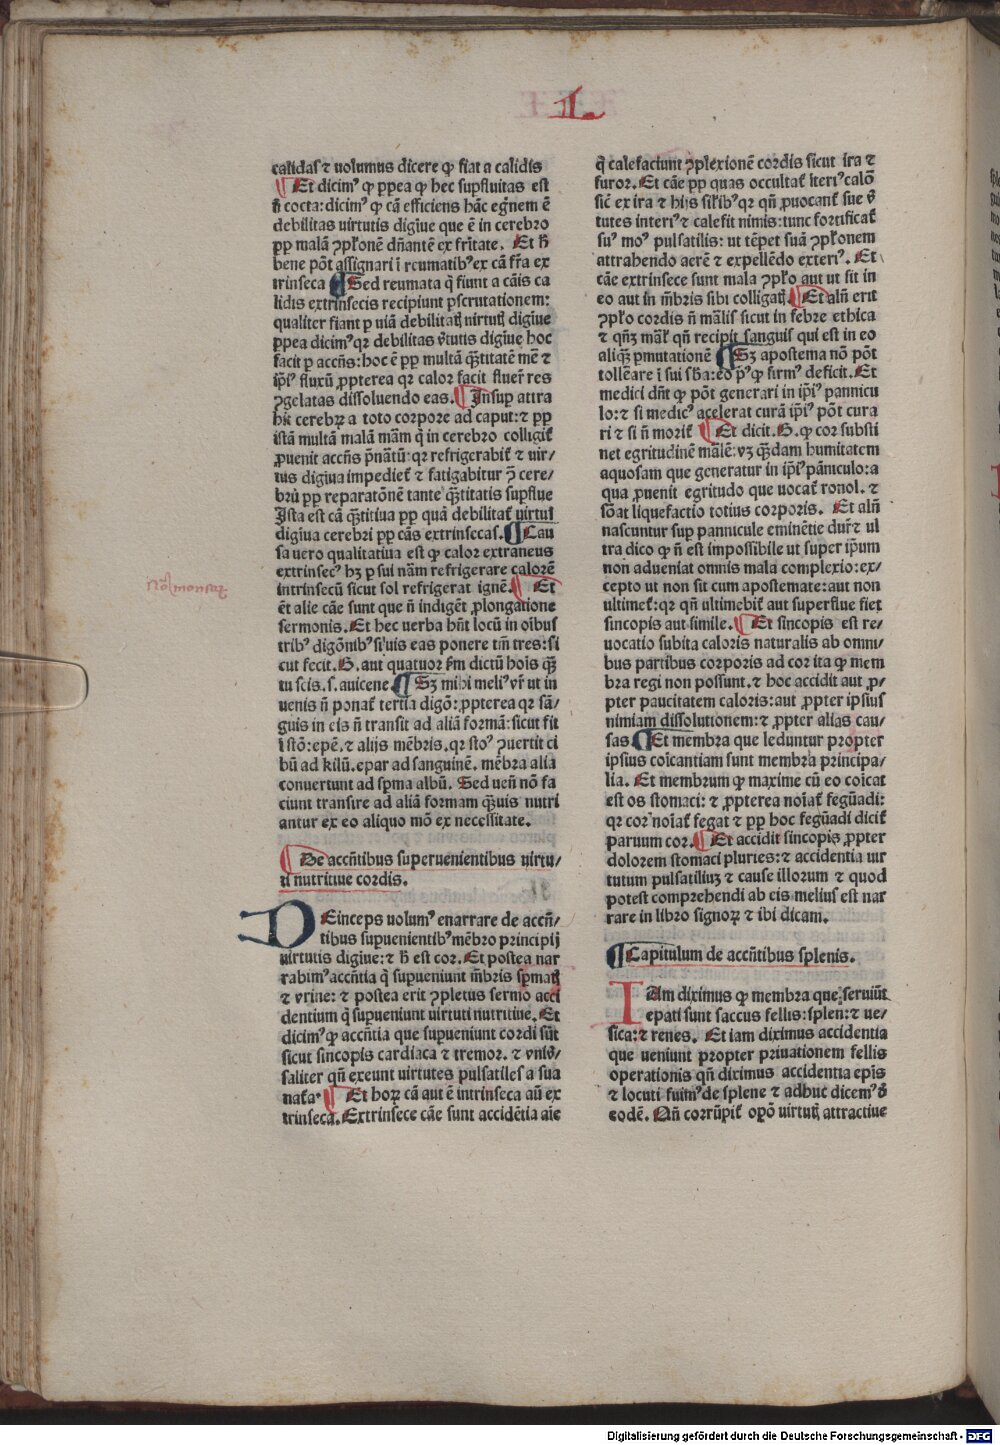 calidas ⁊ uolumus dicere ꝙ fiat a calidis
¶ Et dicimꝰ ꝙ ꝓpea ꝙ hec suꝑfluitas est
cocta: dicimꝰ ꝙ cā efficiens hāc egr̄nem ē
debilitas uirtutis digiue que ē in cerebro
ꝓp malā ꝯplōnē dn̄antē ex fr̄itate. Et h̄
bene pōt assignari ī reumatibꝰ ex cā fr̄a ex
trinseca ¶ Sed reumata q̄ fiunt a cāis ca
lidis extrinsecis recipiunt ꝑscrutationem:
qualiter fiant ꝑ uiā debilitatꝭ uirtutꝭ digiue
ꝓpea dicimꝰ qꝛ debilitas v̄tutis digiue hoc
facit ꝑ accn̄s: hoc ē ꝑꝓ multā q̄ꝫtitatē mē ⁊
ip̄iꝰ fluxū ꝓpterea qꝛ calor facit fluer̄ res
ꝯgelatas dissoluendo eas. ¶ Insuꝑ attra
hit̄ cerebꝝ a toto corpore ad caput: ⁊ ꝓp
istā multā malā mām q̄ in cerebro colligit̄
ꝓuenit accn̄s p̄natū: qꝛ refrigerabit̄ ⁊ uir/
tus digiua impediet̄ ⁊ fatigabitur ꝯ̄ cere/
brū ꝓp reparatōnē tante q̄ꝫtitatis suꝑflue
Ista est cā q̄ꝫtitiua ꝓp quā debilitat̄ uirtus
digiua cerebri ꝓp cās extrinsecas. ¶ Cau
sa uero qualitatiua est ꝙ calor extraneus
extrinsecꝰ hꝫ ꝑ sui nām refrigerare calorē
intrinsecū sicut sol refrigerat ignē. ¶ Et
ēt alie cāe sunt que n̄ indigēt ꝓlongatione
sermonis. Et hec uerba hn̄t locū in oībus
tribꝰ digōnibꝰ si uis eas ponere tm̄ tres: si
cut fecit. G. aut quatuor ẜm dictū hoīs qꝫ
tu scis. s. auicene. ¶ Sꝫ mihi meliꝰ vr̄ ut in
uenis n̄ ponat̄ tertia digō: ꝓpterea qꝛ sā/
guis in eis n̄ transit ad aliā formā: sicut fit
ī stō: epē. ⁊ alijs mēbris. qꝛ stoꝰ ꝯuertit ci
bū ad kilū. epar ad sanguinē. mēbra alia
conuertunt ad sꝑma albū. Sed uen̄ nō fa
ciunt transire ad aliā formam q̄ꝫuis nutri
antur ex eo aliquo mō ex necessitate.
¶ De accn̄tibus superuenientibus uirtu/
ti nutritiue cordis.
DEinceps uolumꝰ enarrare de accn̄/
tibus suꝑuenientibꝰ mēbro principij
uirtutis digiue: ⁊ h̄ est cor. Et postea nar
rabimꝰ accn̄tia q̄ suꝑueniunt m̄bris sꝑmatꝭ
⁊ vrine: ⁊ postea erit ꝯpletus sermo acci
dentium q̄ suꝑueniunt uirtuti nutritiue. Et
dicimꝰ ꝙ accn̄tia que suꝑueniunt cordi sūt
sicut sincopis cardiaca ⁊ tremor. ⁊ vniṽ/
saliter qn̄ exeunt uirtutes pulsatiles a sua
nat̄a. ¶ Et hoꝝ cā aut ē intrinseca aū ex
trinseca. Extrinsece cāe sunt accidētia aīe
1.
q̄ calefaciunt ꝯplexionē cordis sicut ira ⁊
furor. Et cāe ꝓp quas occultat̄ īteriꝰ calō
sic̄ ex ira ⁊ hijs sil̄ibꝰ qꝛ qn̄ ꝓuocant̄ sue v̄
tutes interiꝰ ⁊ calefit nimis: tunc fortificat̄
suꝰ moꝰ pulsatilis: ut tēpet suā ꝯplōnem
attrahendo aerē ⁊ expellēdo exteriꝰ. Et
cāe extrinsece sunt mala ꝯplō aut ut sit in
eo aut in m̄bris sibi colligatꝭ. ¶ Et aln̄ erit
ꝯplō cordis n̄ māl̄is sicut in febre ethica
⁊ qn̄ꝫ māl̄ qn̄ recipit sanguis qui est in eo
aliq̄ꝫ ꝑmutationē ¶ Sꝫ apostema nō pōt
tollēare ī sui sba: eo pꝰ ꝙ firmꝰ deficit. Et
medici dn̄t ꝙ pōt generari in ip̄iꝰ pannicu
lo: ⁊ si medicꝰ acelerat curā ip̄iꝰ pōt cura
ri ⁊ si n̄ morit̄ ¶ Et dicit. G. ꝙ cor substi
net egritudinē mālē: vꝫ q̄ꝫdam humitatem
aquosam que generatur in ip̄iꝰ pāniculo: a
qua ꝓuenit egritudo que uocat̄ ronol. ⁊
sōat liquefactio totius corporis. Et aln̄
nascuntur suꝑ pannicule eminētie durꝭ ⁊ ul
tra dico ꝙ n̄ est impossibile ut super ip̄um
non adueniat omnis mala complexio: ex/
cepto ut non sit cum apostemate: aut non
ultimet̄: qꝛ qn̄ ultimebit̄ aut superflue fiet
sincopis aut simile. ¶ Et sincopis est re/
uocatio subita caloris naturalis ab omni/
bus partibus corporis ad cor ita ꝙ mem
bra regi non possunt. ⁊ hoc accidit aut ꝓ/
pter paucitatem caloris: aut ꝓpter ipsius
nimiam dissolutionem: ⁊ ꝓpter alias cau/
sas ¶ Et membra que leduntur propter
ipsius coīcantiam sunt membra principa/
lia. Et membrum ꝙ maxime cū eo coīcat
est os stomaci: ⁊ ꝓpterea noīat̄ fegūadi:
qꝛ cor noīat̄ fegat ⁊ ꝓp hoc fegūadi dicit̄
paruum cor. ¶ Et accidit sincopis ꝓpter
dolorem stomaci pluries: ⁊ accidentia uir
tutum pulsatiliuꝫ ⁊ cause illorum ⁊ quod
potest comprehendi ab eis melius est nar
rare in libro signoꝝ ⁊ ibi dicam.
¶ Capitulum de accn̄tibus splenis.
IAm diximus ꝙ membra que seruiūt
epati sunt saccus fellis: splen: ⁊ ue/
sica: ⁊ renes. Et iam diximus accidentia
que ueniunt propter priuationem fellis
operationis qn̄ diximus accidentia epīs
⁊ locuti fuimꝰ de splene ⁊ adhuc dicemꝰ d̄
eodē. Qn̄ corrūpit̄ oꝑō uirtutꝭ attractiue
Digitalisierung gefördert durch die Deutsche Forschungsgemeinschaft - DFG